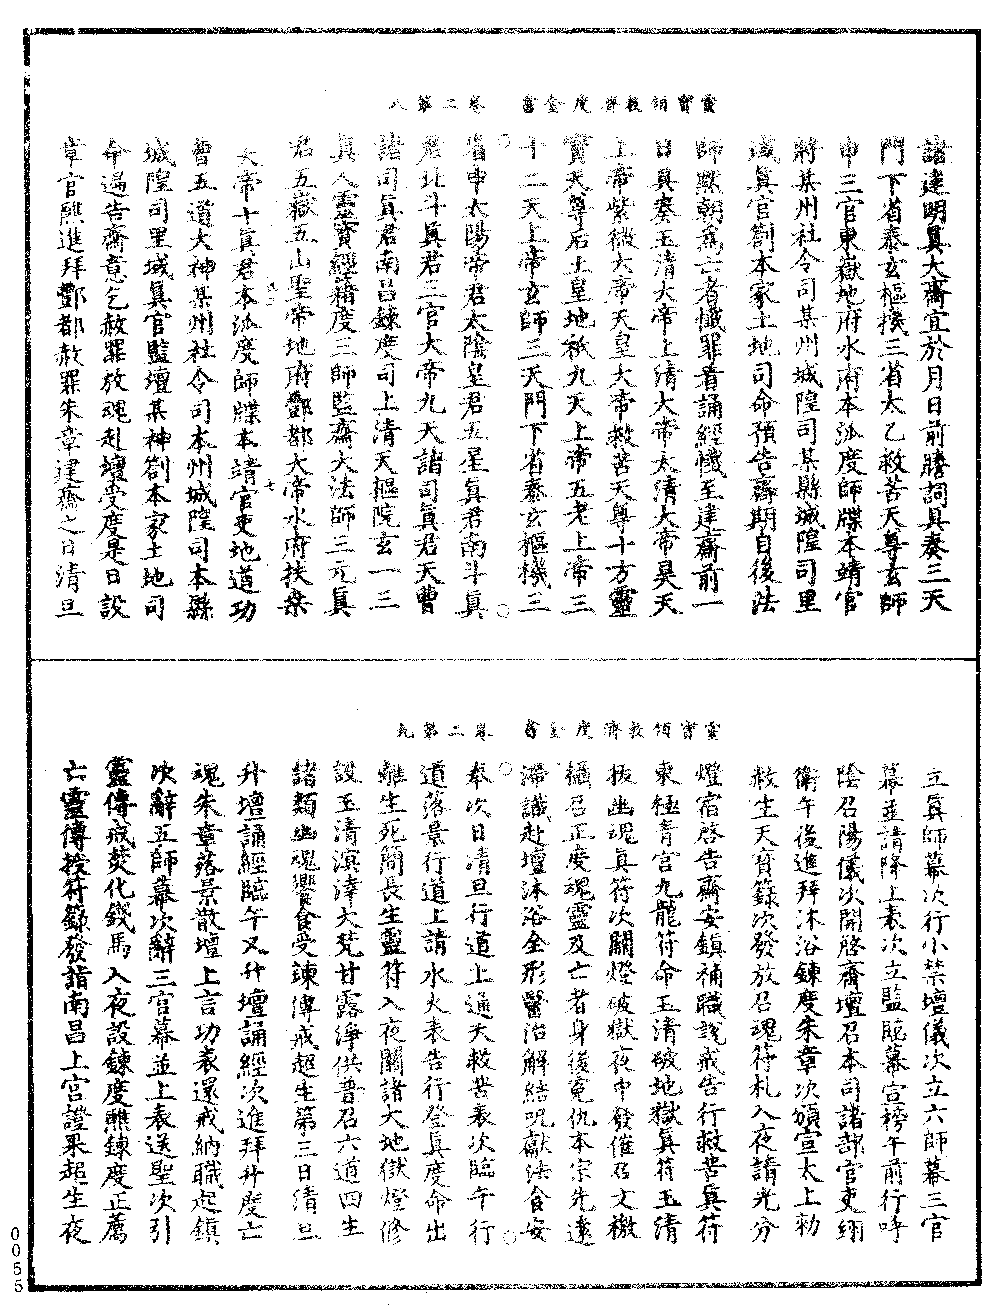 靈寶領教濟度金書　卷二第八
諸建明真大齋宜於月日前牒詞具奏三天
門下省泰玄樞機三省太乙救苦天尊玄師
申三官東嶽地府水府本派度師牒本靖官
將某州社令司某州城隍司某縣城隍司里
域真官劄本家土地司命預告齋期自後法
師默朝為亡者懺罪看誦經懺至建齋前一
日具奏玉清大帝上清大帝太清大帝昊天
上帝紫微大帝天皇大帝救苦天尊十方靈
寶天尊后土皇地祇九天上帝五老上帝三
十二天上帝玄師三天門下省泰玄樞機三
省申太陽帝君太陰皇君五星真君南斗真
君北斗真君三官大帝九天諸司真君天曹
諸司真君南昌鍊度司上清天樞院玄一三
真人靈寶經籍度三師監齋大法師三元真
君五嶽五山聖帝地府酆都大帝水府扶桑
大帝十真君本派度師牒本靖官吏地道功
曹五道大神某州社令司本州城隍司本縣
城隍司里域真官監壇某神劄本家土地司
命遍告齋意乞赦罪放魂赴壇受度是日設
章官醮進拜酆都赦罪朱章建齋之日清旦
靈寶領教濟度金書　卷二第九
立真師幕次行小禁壇儀次立六師幕三官
幕並請降上表次立監臨幕宣榜午前行呼
陰召陽儀次開啓齋壇召本司諸部官吏翊
衛午後進拜沐浴鍊度朱章次頒宣太上勑
赦生天寶籙次發放召魂符札入夜請光分
燈宿啓告齋安鎮補職說戒告行救苦真符
東極青宮九龍符命玉清破地獄真符玉清
拔幽魂真符次關燈破獄夜中發催召文檄
攝召正度魂靈及亡者身後冤仇本宗先遠
滯識赴壇沐浴全形醫治解結呪獻法食安
奉次日清旦行道上通天救苦表次臨午行
道落景行道上請水火表告行登真度命出
離生死簡長生靈符入夜關諸大地獄燈修
設玉清溟涬大梵甘露淨供普召六道四生
諸類幽魂饗食受鍊傳戒超生第三日清旦
升壇誦經臨午又升壇誦經次進拜升度亡
魂朱章落景散壇上言功表還戒納職起鎮
次辭五師幕次辭三官幕並上表送聖次引
靈傳戒焚化錢馬入夜設鍊度醮鍊度正薦
亡靈傳授符籙發詣南昌上宮證果超生夜
0055